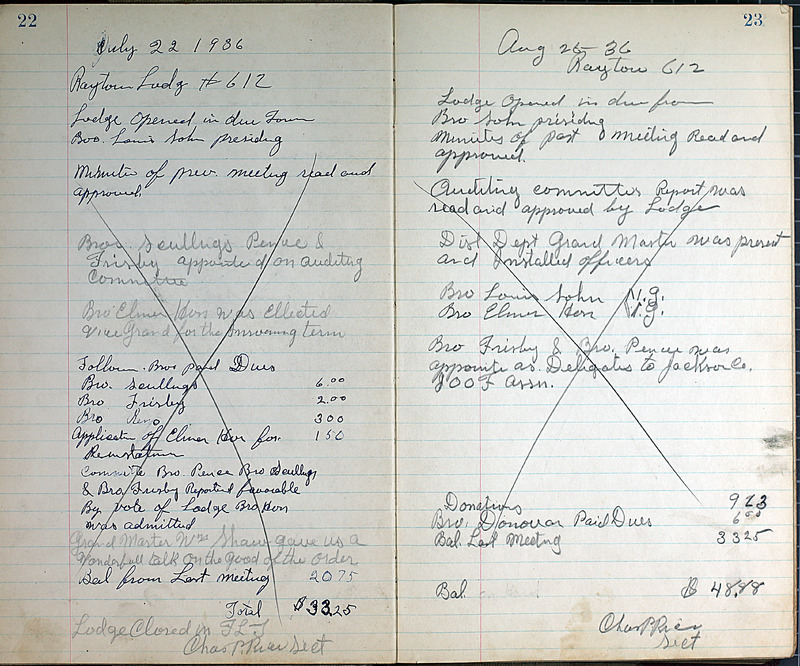 22
July 22 1936
Raytown Lodg # 612
Lodge Opened in due Form
Boo. Louis John presiding
Minutes of prev. meeting read and
approved.
Bros. Scullugs Pence &
Frisby appointed on auditing
Committee
Bro Elmer Hon was Ellected
Vice Grand for the Insureing term
Follown. Bros paid Dues
Bro. Scullugs 6.00
Bro Frisby 2.00
Bro 300
Applicaton of Elmer Hon for. 150
Reinstatum
Committe Bro. Pence Bro Scullugs
& Bro Frisby Reported favorable
By vote of Lodge Bro Hon
was admitted
Grand Master Wm Shaw gave us a
Wonderfull talk on the Good of the order
Bal from Last meeting 2075
Total $33.25
Lodge Closed in F L T
Chas P. Rice Sect
23
Aug 25 - 36
Raytow 612
Lodge Opened in due from
Bro John presiding
Minutes of past meeting Read and
approved.
Auditing committes Report was
read and approved by Lodge
Dist Dept Grand Master was present
and Installed officers
Bro Louis John N.G.
Bro Elmer Hon V.G.
Bro Frisby & Bro. Pence was
appointe as Deligates to Jackson Co.
I O O F Assn.
Donations 9 23
Bro. Donovan Paid Dues 6 00
Bal Last Meeting 3325
Bal. $ 48.48
Chas P Rice
Sect